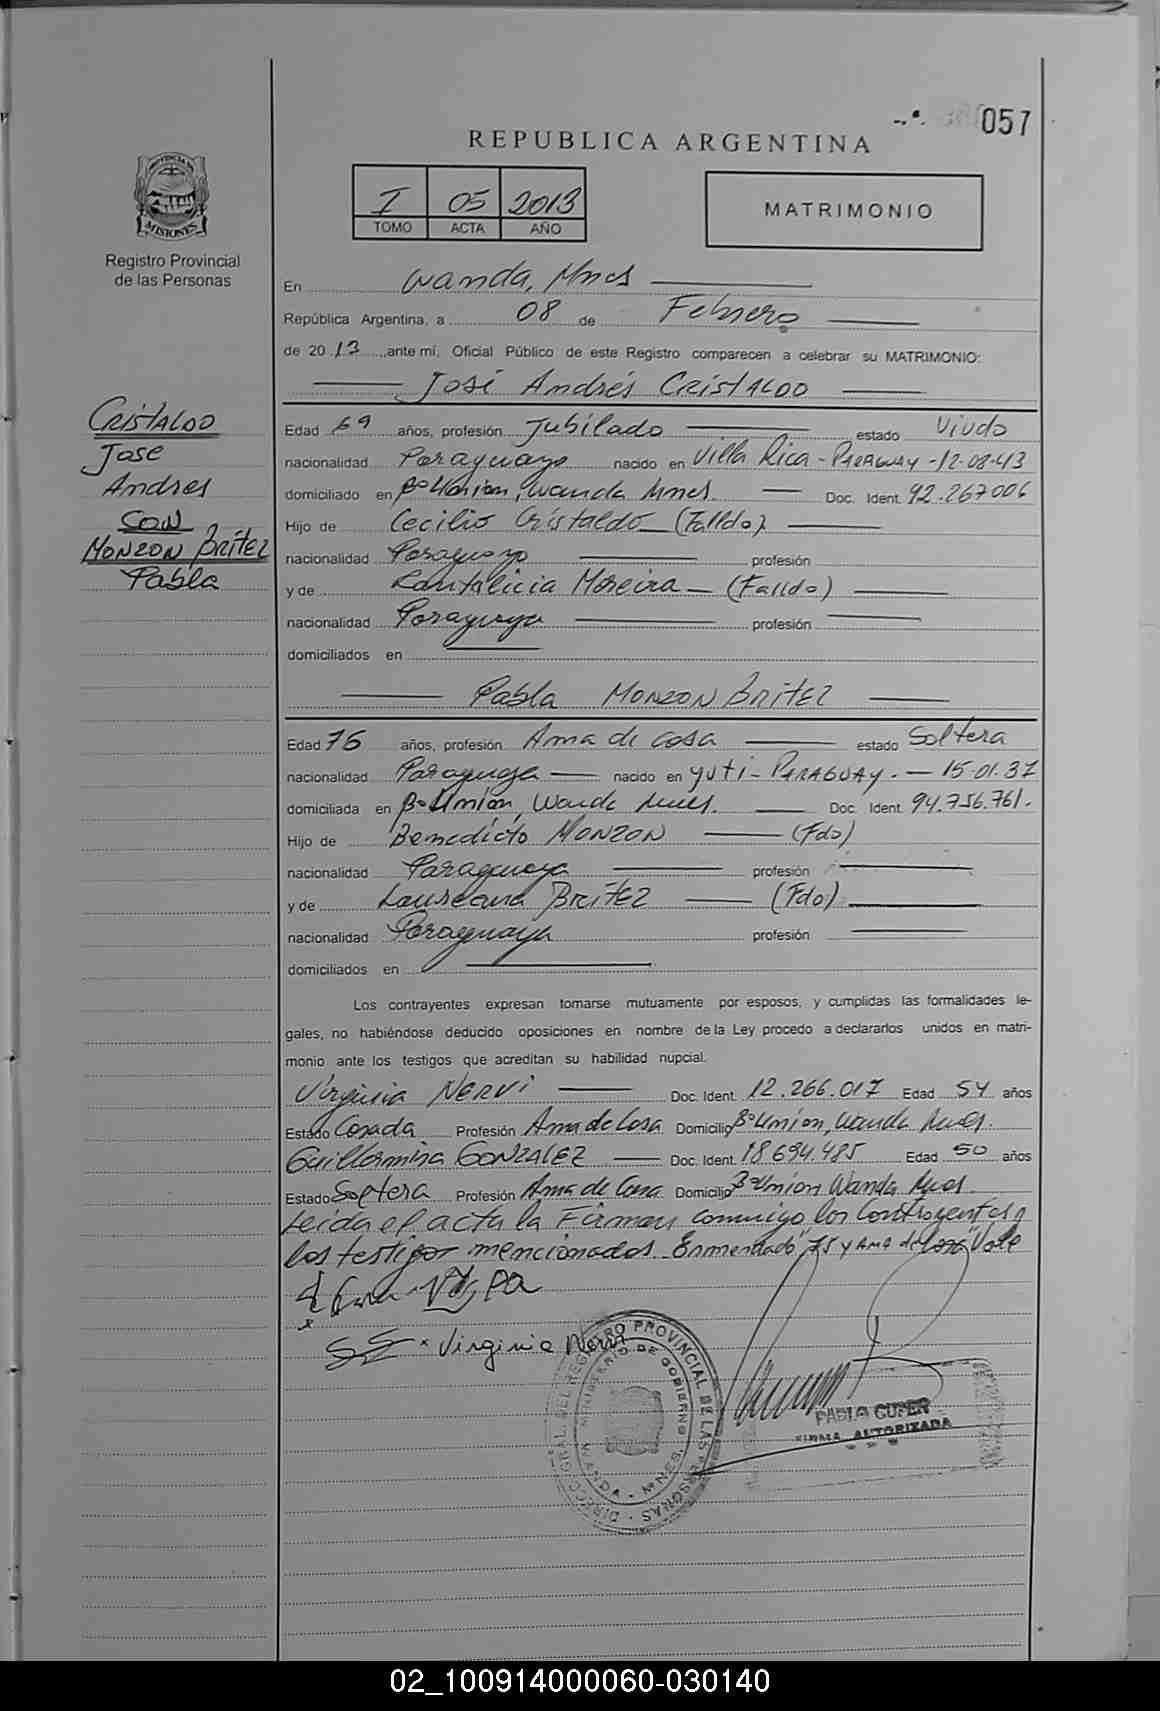 057
REPUBLICA ARGENTINA
I 05 2013
TOMO ACTA AÑO
MATRIMONIO
PROVINCIA DE
MISIONES
Registro Provincial
de las Personas
En Wanda, Mnes
República Argentina, a 08 de Febrero
de 2013 ante mí, Oficial Público de este Registro comparecen a celebrar su MATRIMONIO:
José Andrés CRISTALDO
CRISTALDO
Jose
Andres
CON
MONZON BRITEZ
Pabla
Edad 69 años, profesión Jubilado estado Viudo
nacionalidad Paraguayo nacido en Villa Rica - PARAGUAY - 12-08-43
domiciliado en B° Union, Wanda Mnes. Doc. Ident. 92.267006
Hijo de Cecilio Cristaldo (Falldo)
nacionalidad Paraguayo profesión
y de Cantalicia Moreira (Falldo)
nacionalidad Paraguaya profesión
domiciliados en
Pabla MONZON BRITEZ
Edad 75 años, profesión Ama de casa estado Soltera
nacionalidad Paraguaya nacido en yuti - PARAGUAY. - 15-01-37
domiciliada en B° Unión, Wanda Mnes. Doc. Ident. 94.756.761.
Hijo de Benedicto MONZON (Fdo)
nacionalidad Paraguaya profesión
y de Laureana BRITEZ (Fdo)
nacionalidad Paraguaya profesión
domiciliados en
Los contrayentes expresan tomarse mutuamente por esposos, y cumplidas las formalidades le-
gales, no habiéndose deducido oposiciones en nombre de la Ley procedo a declararlos unidos en matri-
monio ante los testigos que acreditan su habilidad nupcial.
Virginia NERVI Doc. Ident. 12.266.017 Edad 54 años
Estado Casada Profesión Ama de Casa Domicilio B° Union, Wanda Mnes.
Guillermina GONZALEZ Doc. Ident. 18.694.485 Edad 50 años
Estado Soltera Profesión Ama de Casa Domicilio B° Union Wanda Mnes.
Leida el acta la Firman conmigo los Contrayentes y
los testigos mencionados. Enmendado "75 y Ama de Casa" Vale
x Virginia Nervi
DIRECC. GRAL. DEL REGISTRO PROVINCIAL DE LAS PERSONAS
MINISTERIO DE GOBIERNO
WANDA - MNES.
PABLA CUPER
FIRMA AUTORIZADA
02_100914000060-030140